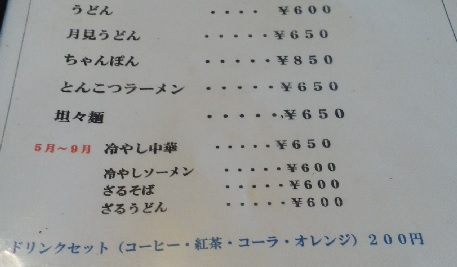 うどん ・・・・ ￥600
月見うどん ・・・・・￥650
ちゃんぽん ・・・・・￥850
とんこつラーメン ・・・・・￥650
坦々麺 ・・・・・￥650
5月～9月 冷やし中華 ・・・・・￥650
冷やしソーメン ・・・・・￥600
ざるそば ・・・・・￥600
ざるうどん ・・・・・￥600
ドリンクセット（コーヒー・紅茶・コーラ・オレンジ）200円